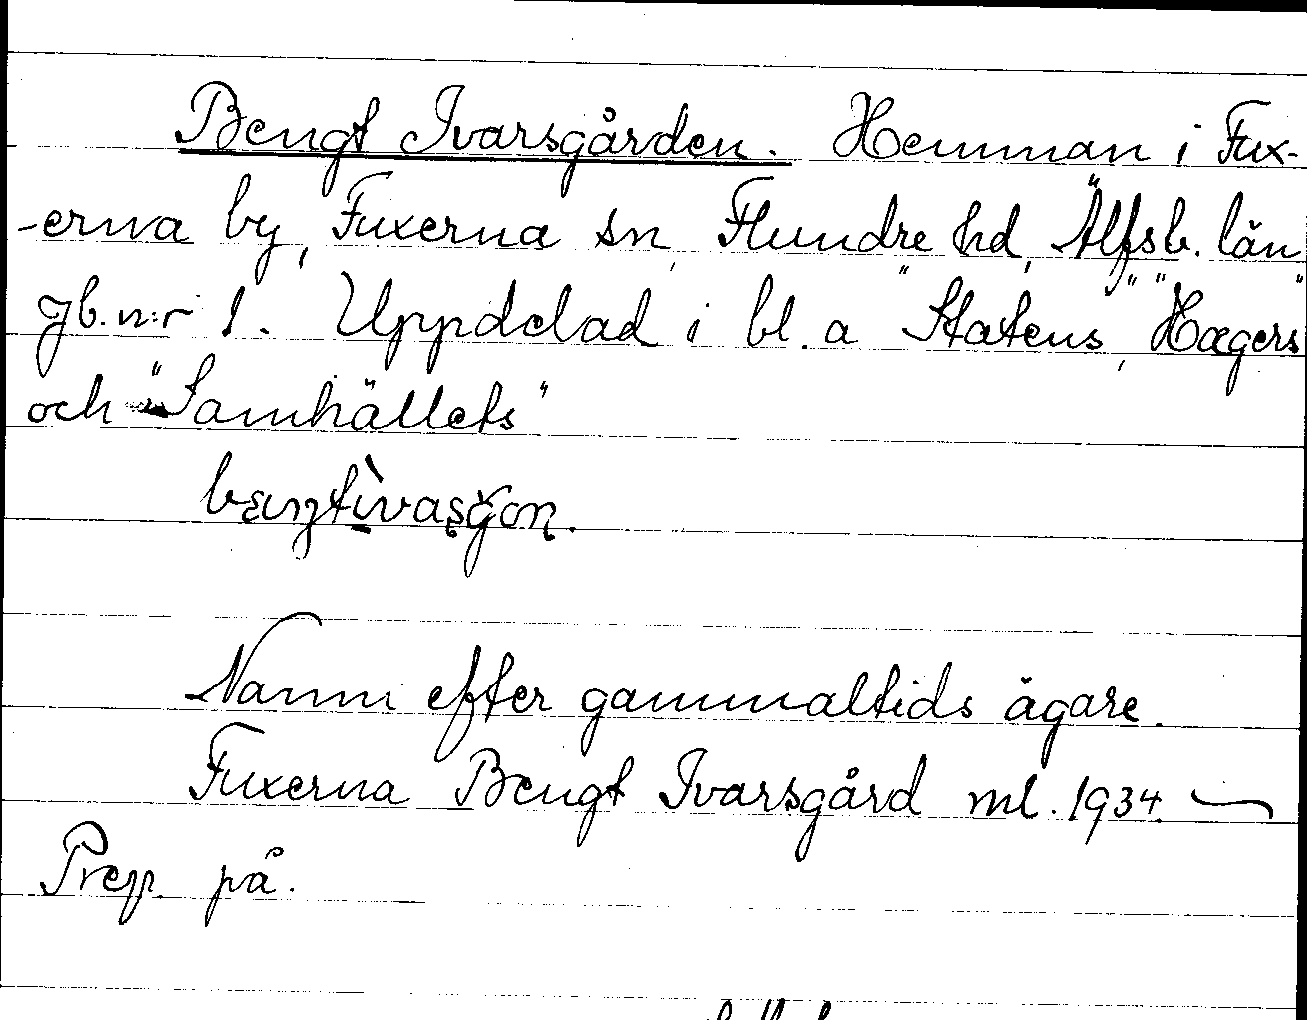 Bengt Ivarsgården. Hemman i Fux-
-erna by, Fuxerna sn, Flundre hd, Älfsb. län
Jb. n:r 1. Uppdelad i bl. a "Statens", "Hagers"
och "Samhällets"
Namn efter gammaltids ägare.
Fuxerna Bengt Ivarsgård ml. 1934.
Prep. på.